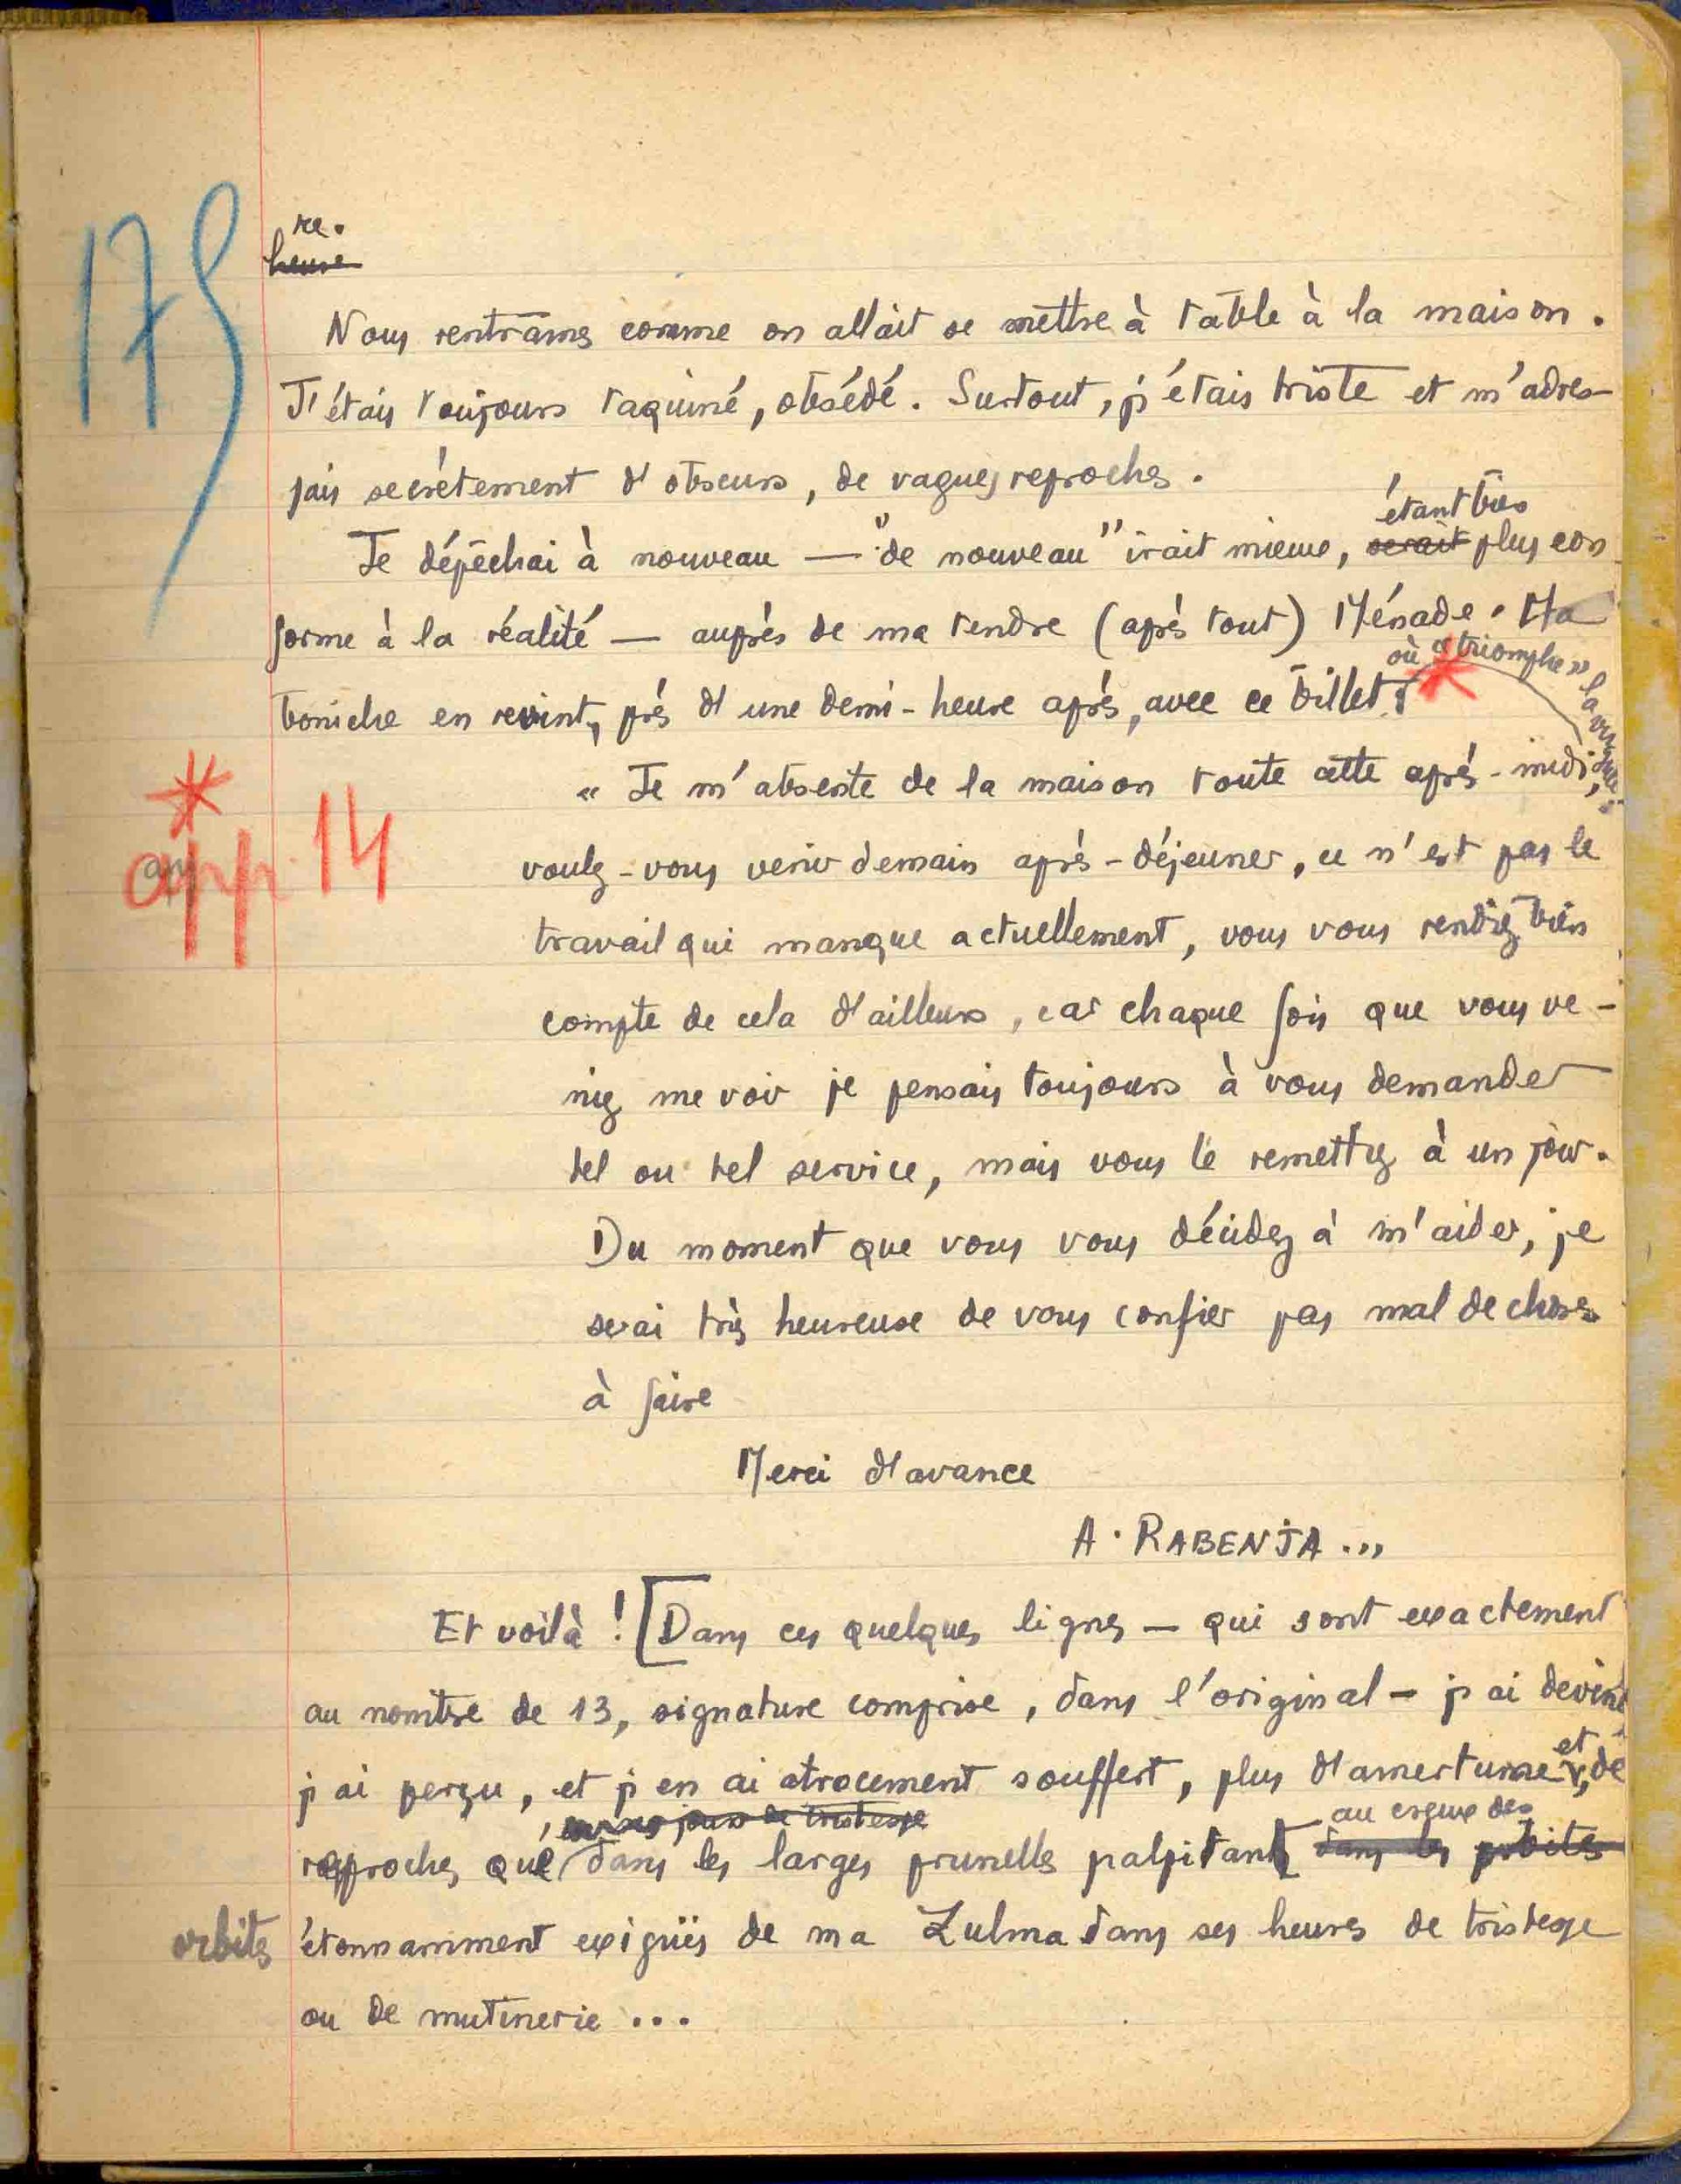 175
re.
heure
Nous rentrâmes comme on allait se mettre à table à la maison.
J'étais toujours taquiné, obsédé. Surtout, j'étais triste et m'adres-
sais secrètement d'obscurs, de vagues reproches.
étant très
Je dépêchai à nouveau — "de nouveau" irait mieux, serait plus con-
forme à la réalité — auprès de ma tendre (après tout) Ménade. Ma
où « triomphe » la virgule :
boniche en revint, près d'une demi-heure après, avec ce billet *
« Je m'absente de la maison toute cette après-midi,
* app. 14
voulez-vous venir demain après-déjeuner, ce n'est pas le
travail qui manque actuellement, vous vous rendiez bien
compte de cela d'ailleurs, car chaque fois que vous ve-
niez me voir je pensais toujours à vous demander
tel ou tel service, mais vous le remettez à un jour.
Du moment que vous vous décidez à m'aider, je
serai très heureuse de vous confier pas mal de choses
à faire
Merci d'avance
A. RABENJA...
Et voilà ! [Dans ces quelques lignes — qui sont exactement
au nombre de 13, signature comprise, dans l'original — j'ai deviné
et
j'ai perçu, et j'en ai atrocement souffert, plus d'amertume, de
jours de tristesse au creux des
reproches, que dans les larges prunelles palpitant dans les orbites
orbites étonnamment exigües de ma Zulma dans ses heures de tristesse
ou de mutinerie ...